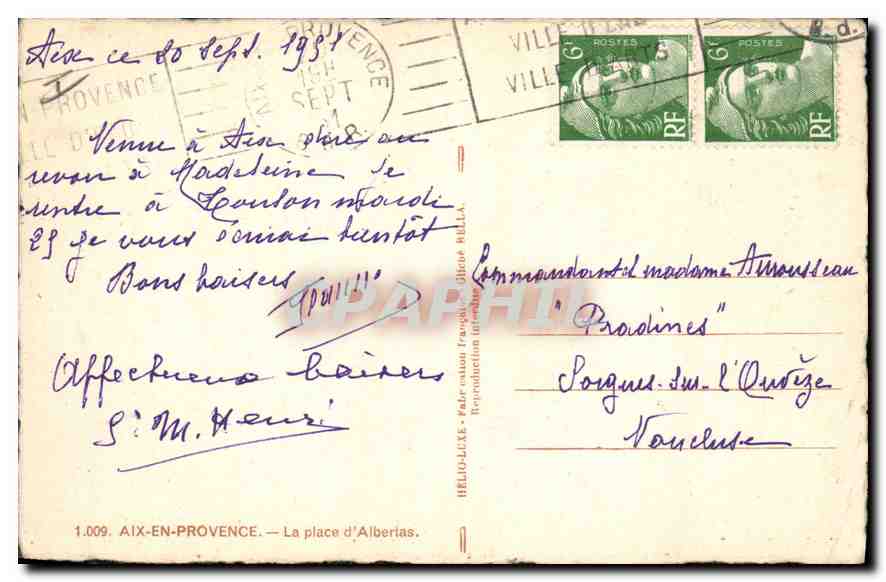 Aix ce 20 sept. 1951
PROVENCE
19H
SEPT
VILLE D'EAU
VILLE D'ARTS
N-PROVENCE
6F POSTES RF
6F POSTES RF
R.d.
Venue à Aix dire au
revoir à Madeleine je
rentre à Toulon mardi
25 je vous écrirai bientôt
Bons baisers
Affectueux baisers
Sr M. Henri
CPAPHIL
HELIO-LUXE - Fabrication française - Cliché RELLA.
Reproduction interdite
Commandant et madame Arrousseau
"Pradines"
Sorgues-sur-l'Ouvèze
Vaucluse
1.009. AIX-EN-PROVENCE. — La place d'Albertas.